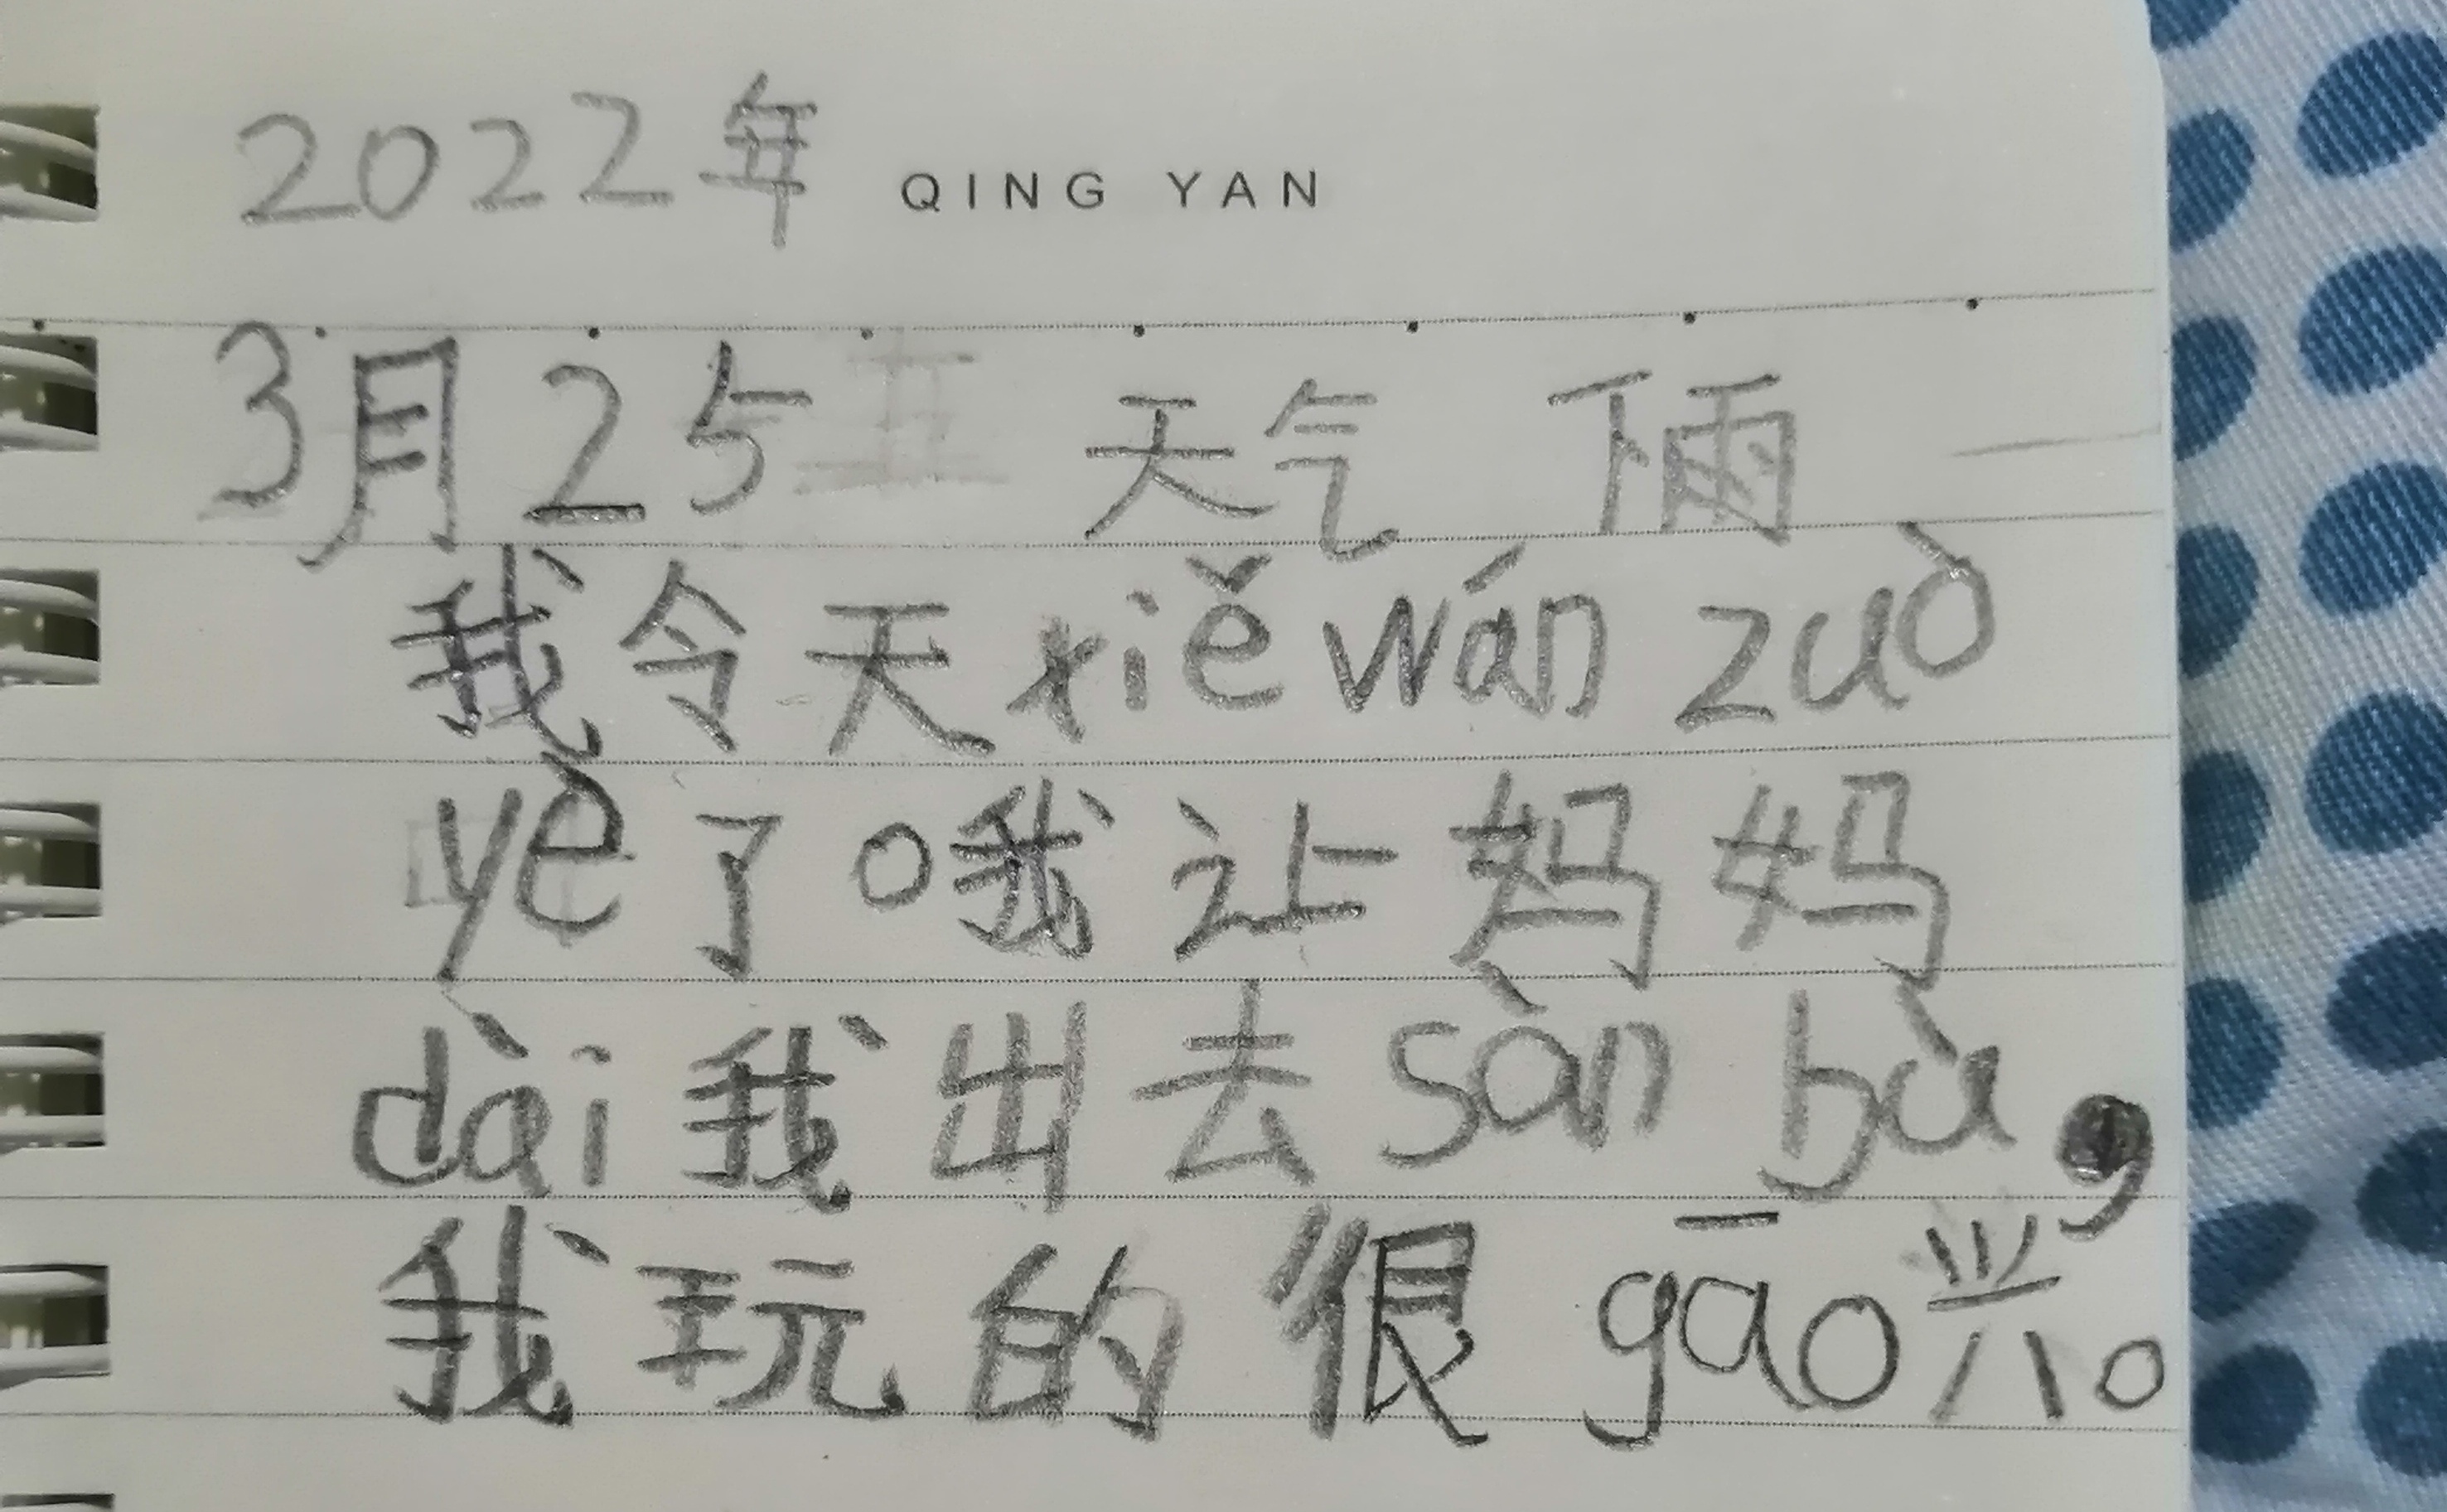 2022年 QING YAN
3月25 天气 下雨
我今天xiě wán zuò
yè了。我让妈妈
dài我出去sàn bù，
我玩的很gāo兴。